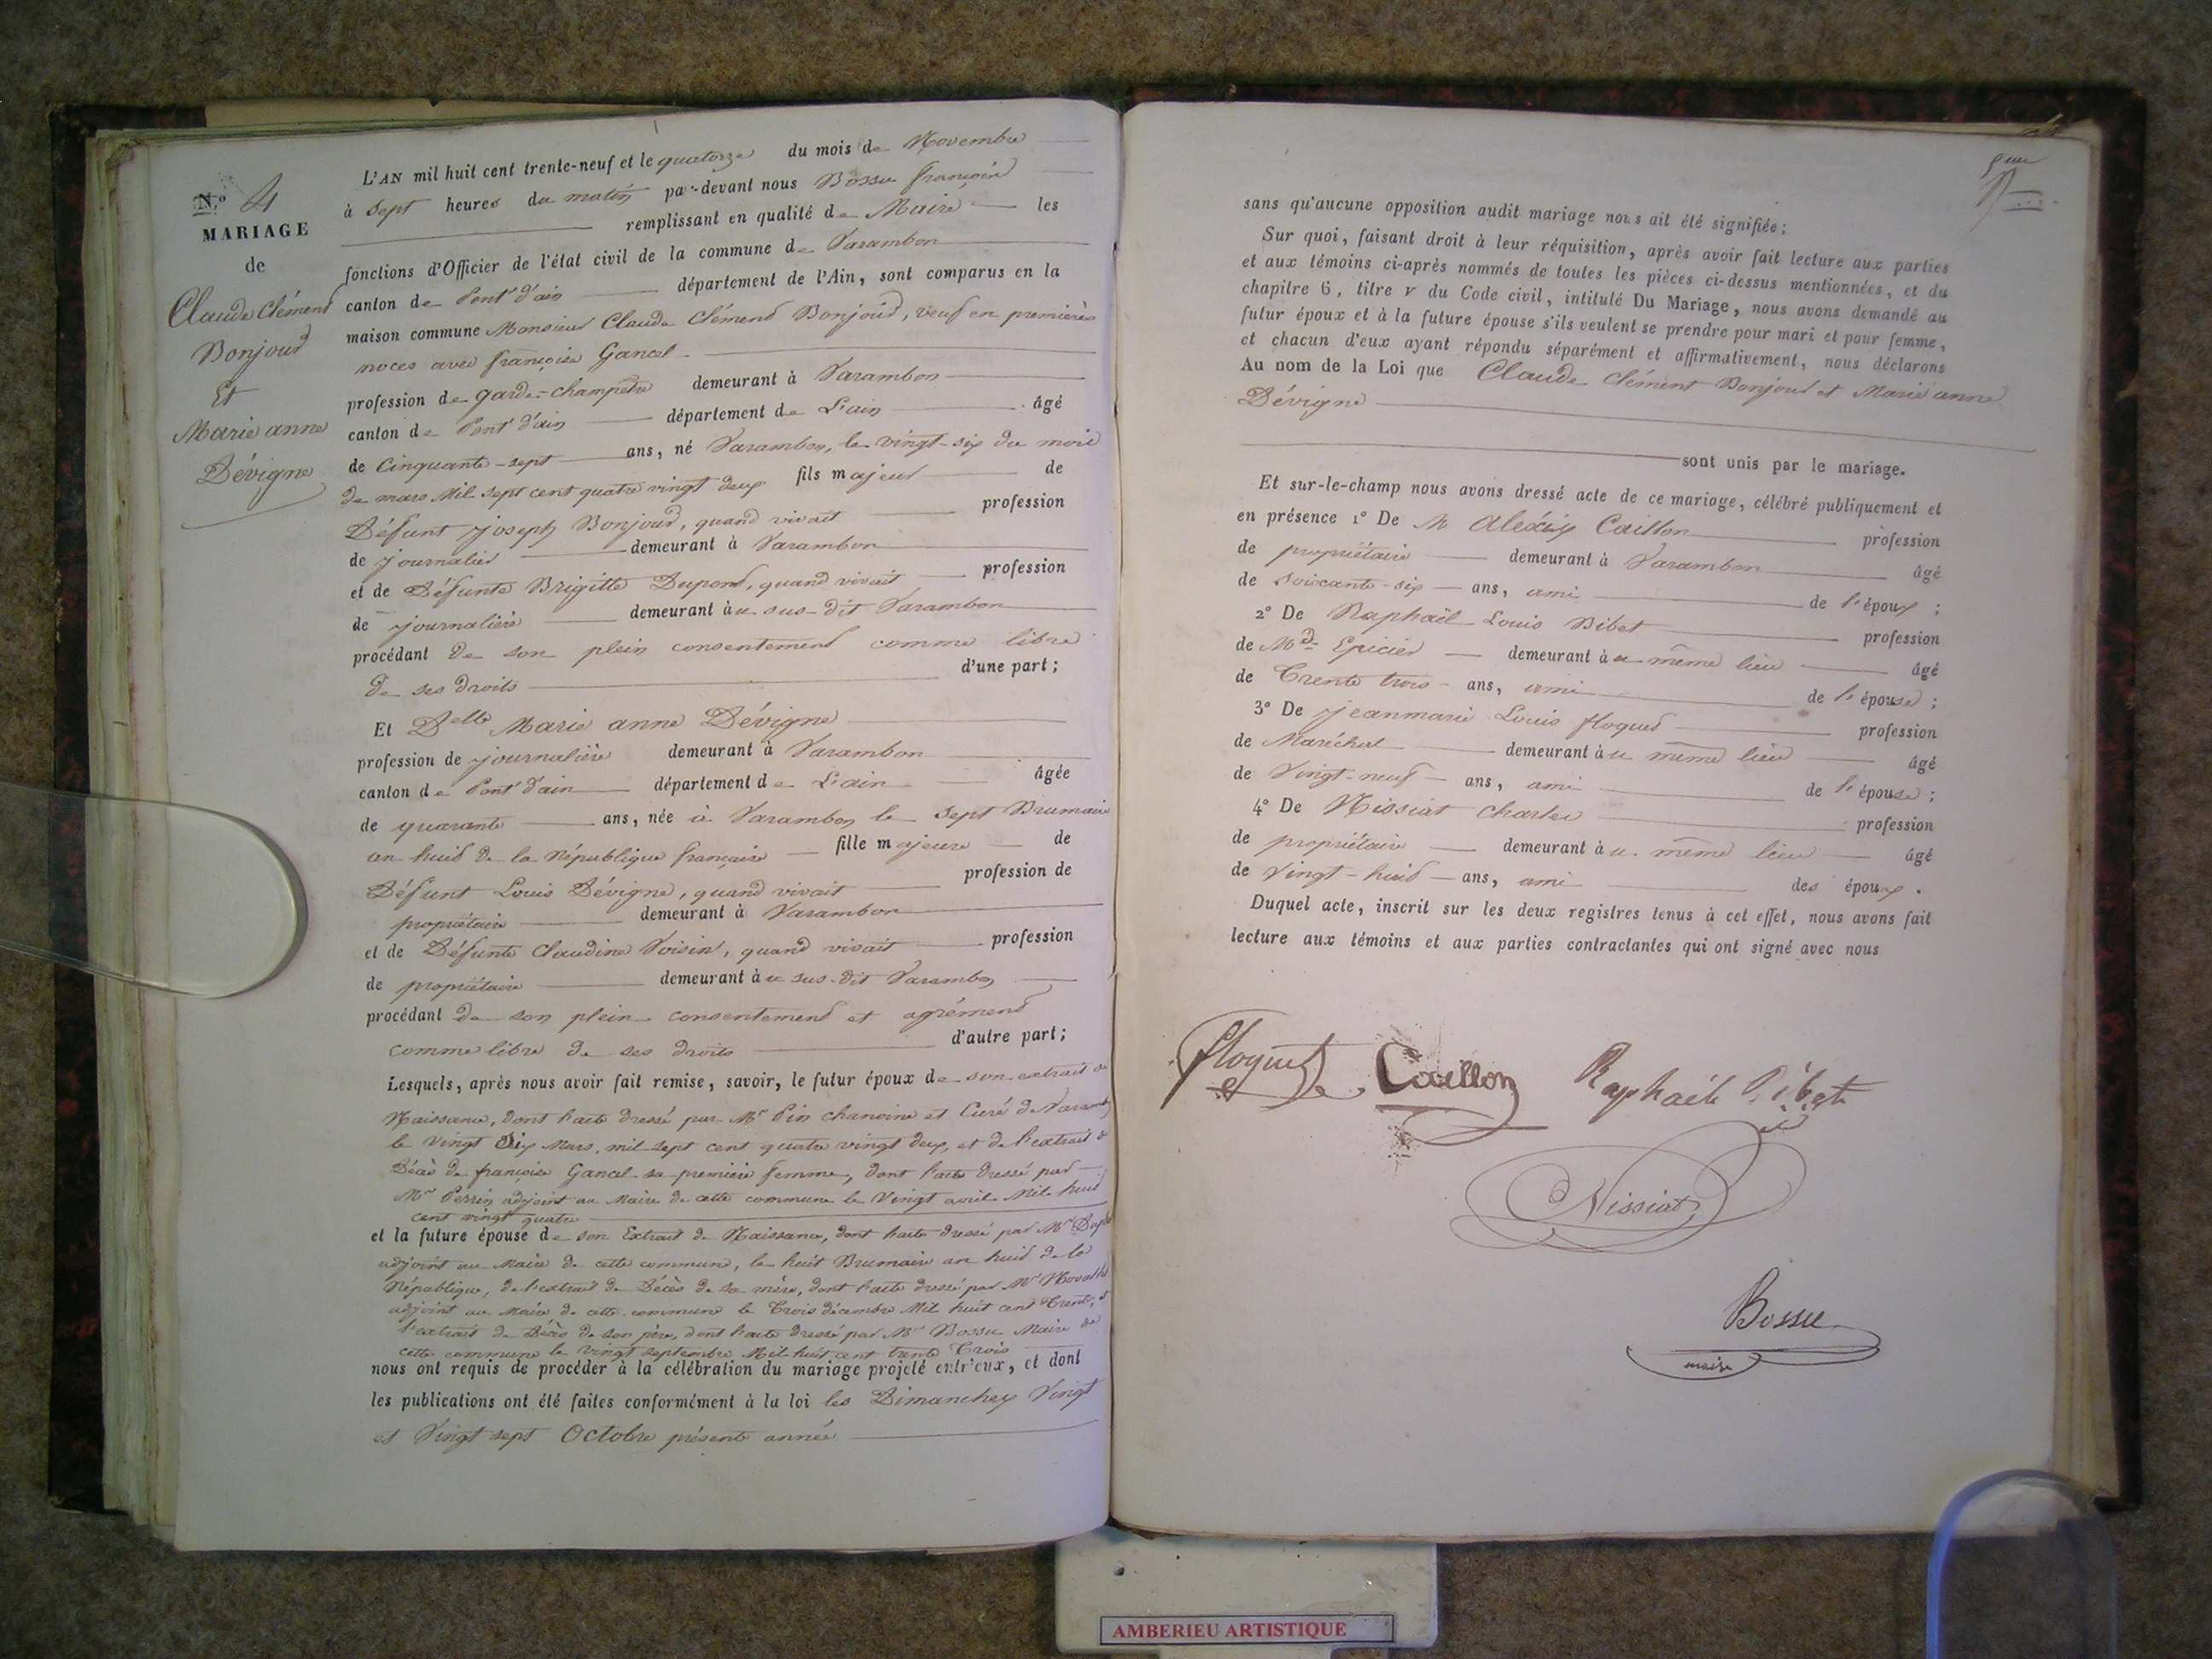 N.º 4
MARIAGE
de
Claude Clément
Bonjour
Et
Marie anne
Dévigne
L'AN mil huit cent trente-neuf et le quatorze du mois de Novembre
à sept heures du matin par-devant nous Bossu françois
remplissant en qualité de Maire les
fonctions d'Officier de l'état civil de la commune de Varambon
canton de Pont d'ain département de l'Ain, sont comparus en la
maison commune Monsieur Claude Clément Bonjour, veuf en premières
noces avec françoise Gancel
profession de garde-champêtre demeurant à Varambon
canton de Pont d'ain département de L'ain âgé
de Cinquante-sept ans, né Varambon, le vingt-six du mois
de mars Mil sept cent quatre vingt deux fils majeur de
Défunt joseph Bonjour, quand vivait profession
de journalier demeurant à Varambon
et de Défunte Brigitte Dupont, quand vivait profession
de journalière demeurant àu sus-dit Varambon
procédant de son plein consentement comme libre
de ses droits d'une part;
Et Delle Marie anne Dévigne
profession de journalière demeurant à Varambon
canton de Pont d'ain département de L'ain âgée
de quarante ans, née à Varambon le sept Brumaire
an huit de la République française fille majeure de
Défunt Louis Dévigne, quand vivait profession de
propriétaire demeurant à Varambon
et de Défunte Claudine Voisin, quand vivait profession
de propriétaire demeurant àu sus-dit Varambon
procédant de son plein consentement et agrément
comme libre de ses droits d'autre part;
Lesquels, après nous avoir fait remise, savoir, le futur époux de son extrait de
Naissance, dont l'acte dressé par Mr Pin chanoine et Curé de Varambon
le Vingt Six Mars, mil sept cent quatre vingt deux, et de l'extrait de
Décès de françoise Gancel sa première femme, dont l'acte dressé par
Mr Perrin adjoint au Maire de cette commune le Vingt avril Mil huit
cent vingt quatre
et la future épouse de son Extrait de Naissance, dont l'acte dressé par Mr
adjoint au Maire de cette commune, le huit Brumaire an huit de la
République, de l'extrait de Décès de sa mère, dont l'acte dressé par Mr
adjoint au Maire de cette commune le Trois décembre Mil huit cent Trente, et
l'extrait de Décès de son père, dont l'acte dressé par Mr Bossu Maire de
cette commune le Vingt septembre Mil huit cent trente Trois
nous ont requis de procéder à la célébration du mariage projeté entr'eux, et dont
les publications ont été faites conformément à la loi les Dimanches Vingt
et Vingt sept Octobre présente année
sans qu'aucune opposition audit mariage nous ait été signifiée;
Sur quoi, faisant droit à leur réquisition, après avoir fait lecture aux parties
et aux témoins ci-après nommés de toutes les pièces ci-dessus mentionnées, et du
chapitre 6, titre v du Code civil, intitulé Du Mariage, nous avons demandé au
futur époux et à la future épouse s'ils veulent se prendre pour mari et pour femme,
et chacun d'eux ayant répondu séparément et affirmativement, nous déclarons
Au nom de la Loi que Claude Clément Bonjour et Marie anne
Dévigne
sont unis par le mariage.
Et sur-le-champ nous avons dressé acte de ce mariage, célébré publiquement et
en présence 1º De M Alexix Caillon profession
de propriétaire demeurant à Varambon âgé
de soixante-six ans, ami de l'époux;
2º De Raphaël-Louis Bibet profession
de Md Epicier demeurant àu même lieu âgé
de Trente trois ans, ami de l'épouse;
3º De jeanmarie Louis floquet profession
de Maréchal demeurant àu même lieu âgé
de Vingt-neuf ans, ami de l'épouse;
4º De Nissiat Charles profession
de propriétaire demeurant àu même lieu âgé
de Vingt-huit ans, ami des époux.
Duquel acte, inscrit sur les deux registres tenus à cet effet, nous avons fait
lecture aux témoins et aux parties contractantes qui ont signé avec nous
floquet Caillon Raphaël Bibet
Nissiat
Bossu
maire
AMBERIEU ARTISTIQUE